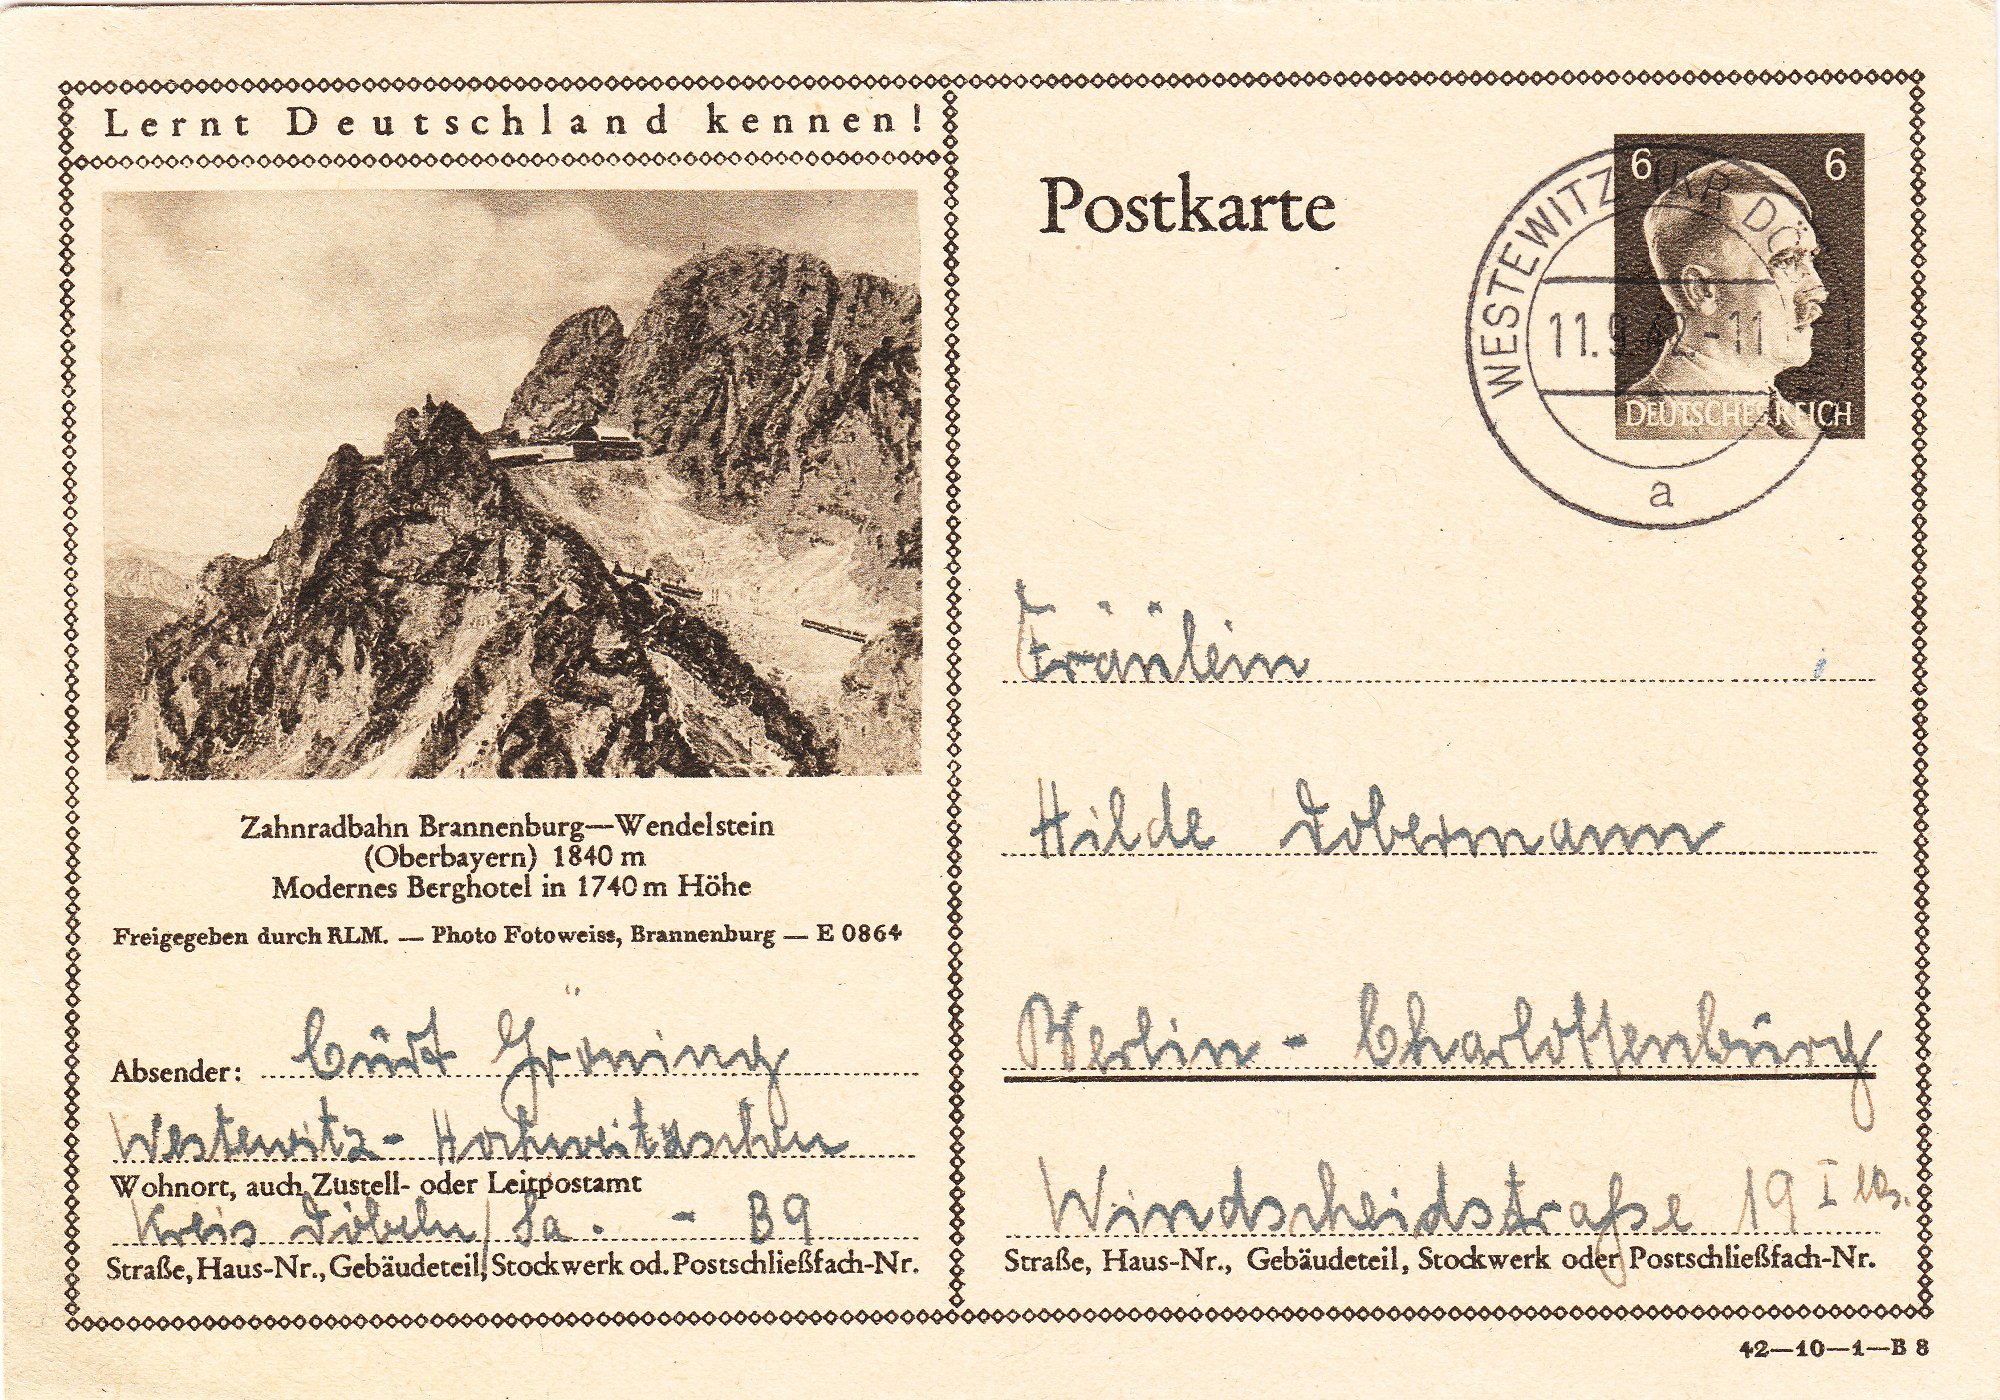 Lernt Deutschland kennen!
Zahnradbahn Brannenburg—Wendelstein
(Oberbayern) 1840 m
Modernes Berghotel in 1740 m Höhe
Freigegeben durch RLM. — Photo Fotoweiss, Brannenburg — E 0864
Absender: Curt Gröning
Westewitz - Hochweitzschen
Wohnort, auch Zustell- oder Leitpostamt
Kreis Döbeln/Sa. - B9
Straße, Haus-Nr., Gebäudeteil, Stockwerk od. Postschließfach-Nr.
Postkarte
6 6
DEUTSCHES REICH
WESTEWITZ
11.9.42.-11
a
Fräulein
Hilde Dobermann
Berlin - Charlottenburg
Windscheidstraße 19 I
Straße, Haus-Nr., Gebäudeteil, Stockwerk oder Postschließfach-Nr.
42—10—1—B 8